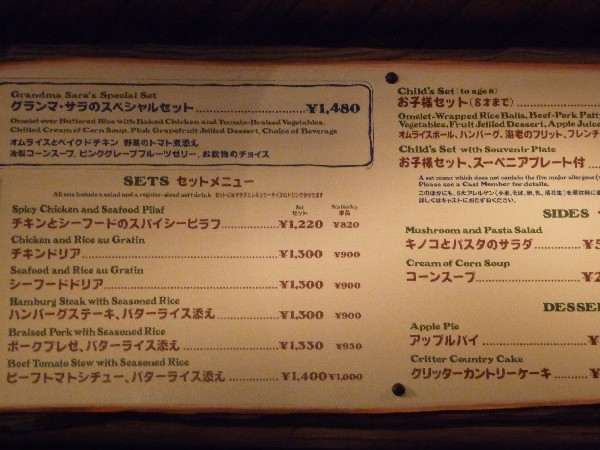 Grandma Sara's Special Set
グランマ・サラのスペシャルセット ¥1,480
Omelet over Buttered Rice with Baked Chicken and Tomato-Braised Vegetables,
Chilled Cream of Corn Soup, Pink Grapefruit Jellied Dessert, Choice of Beverage
オムライスとベイクドチキン 野菜のトマト煮添え
冷製コーンスープ、ピンクグレープフルーツゼリー、お飲物のチョイス
SETS セットメニュー
All sets include a salad and a regular-sized soft drink.
Set セット
単品
Spicy Chicken and Seafood Pilaf
チキンとシーフードのスパイシーピラフ ¥1,220 ¥820
Chicken and Rice au Gratin
チキンドリア ¥1,300 ¥900
Seafood and Rice au Gratin
シーフードドリア ¥1,300 ¥900
Hamburg Steak with Seasoned Rice
ハンバーグステーキ、バターライス添え ¥1,300 ¥900
Braised Pork with Seasoned Rice
ポークブレゼ、バターライス添え ¥1,330 ¥930
Beef Tomato Stew with Seasoned Rice
ビーフトマトシチュー、バターライス添え ¥1,400 ¥1,000
Child's Set (to age 8)
お子様セット(8才まで)
Omelet-Wrapped Rice Balls, Beef-Pork Patty
Vegetables, Fruit Jellied Dessert, Apple Juice
オムライスボール、ハンバーグ、海老のフリット、フレンチ
Child's Set with Souvenir Plate
お子様セット、スーベニアプレート付
A set menu which does not contain the five major allergens
Please see a Cast Member for details.
詳しくはキャストにおたずねください。
SIDES
Mushroom and Pasta Salad
キノコとパスタのサラダ ¥5
Cream of Corn Soup
コーンスープ ¥2
DESSE
Apple Pie
アップルパイ ¥
Critter Country Cake
クリッターカントリーケーキ ¥